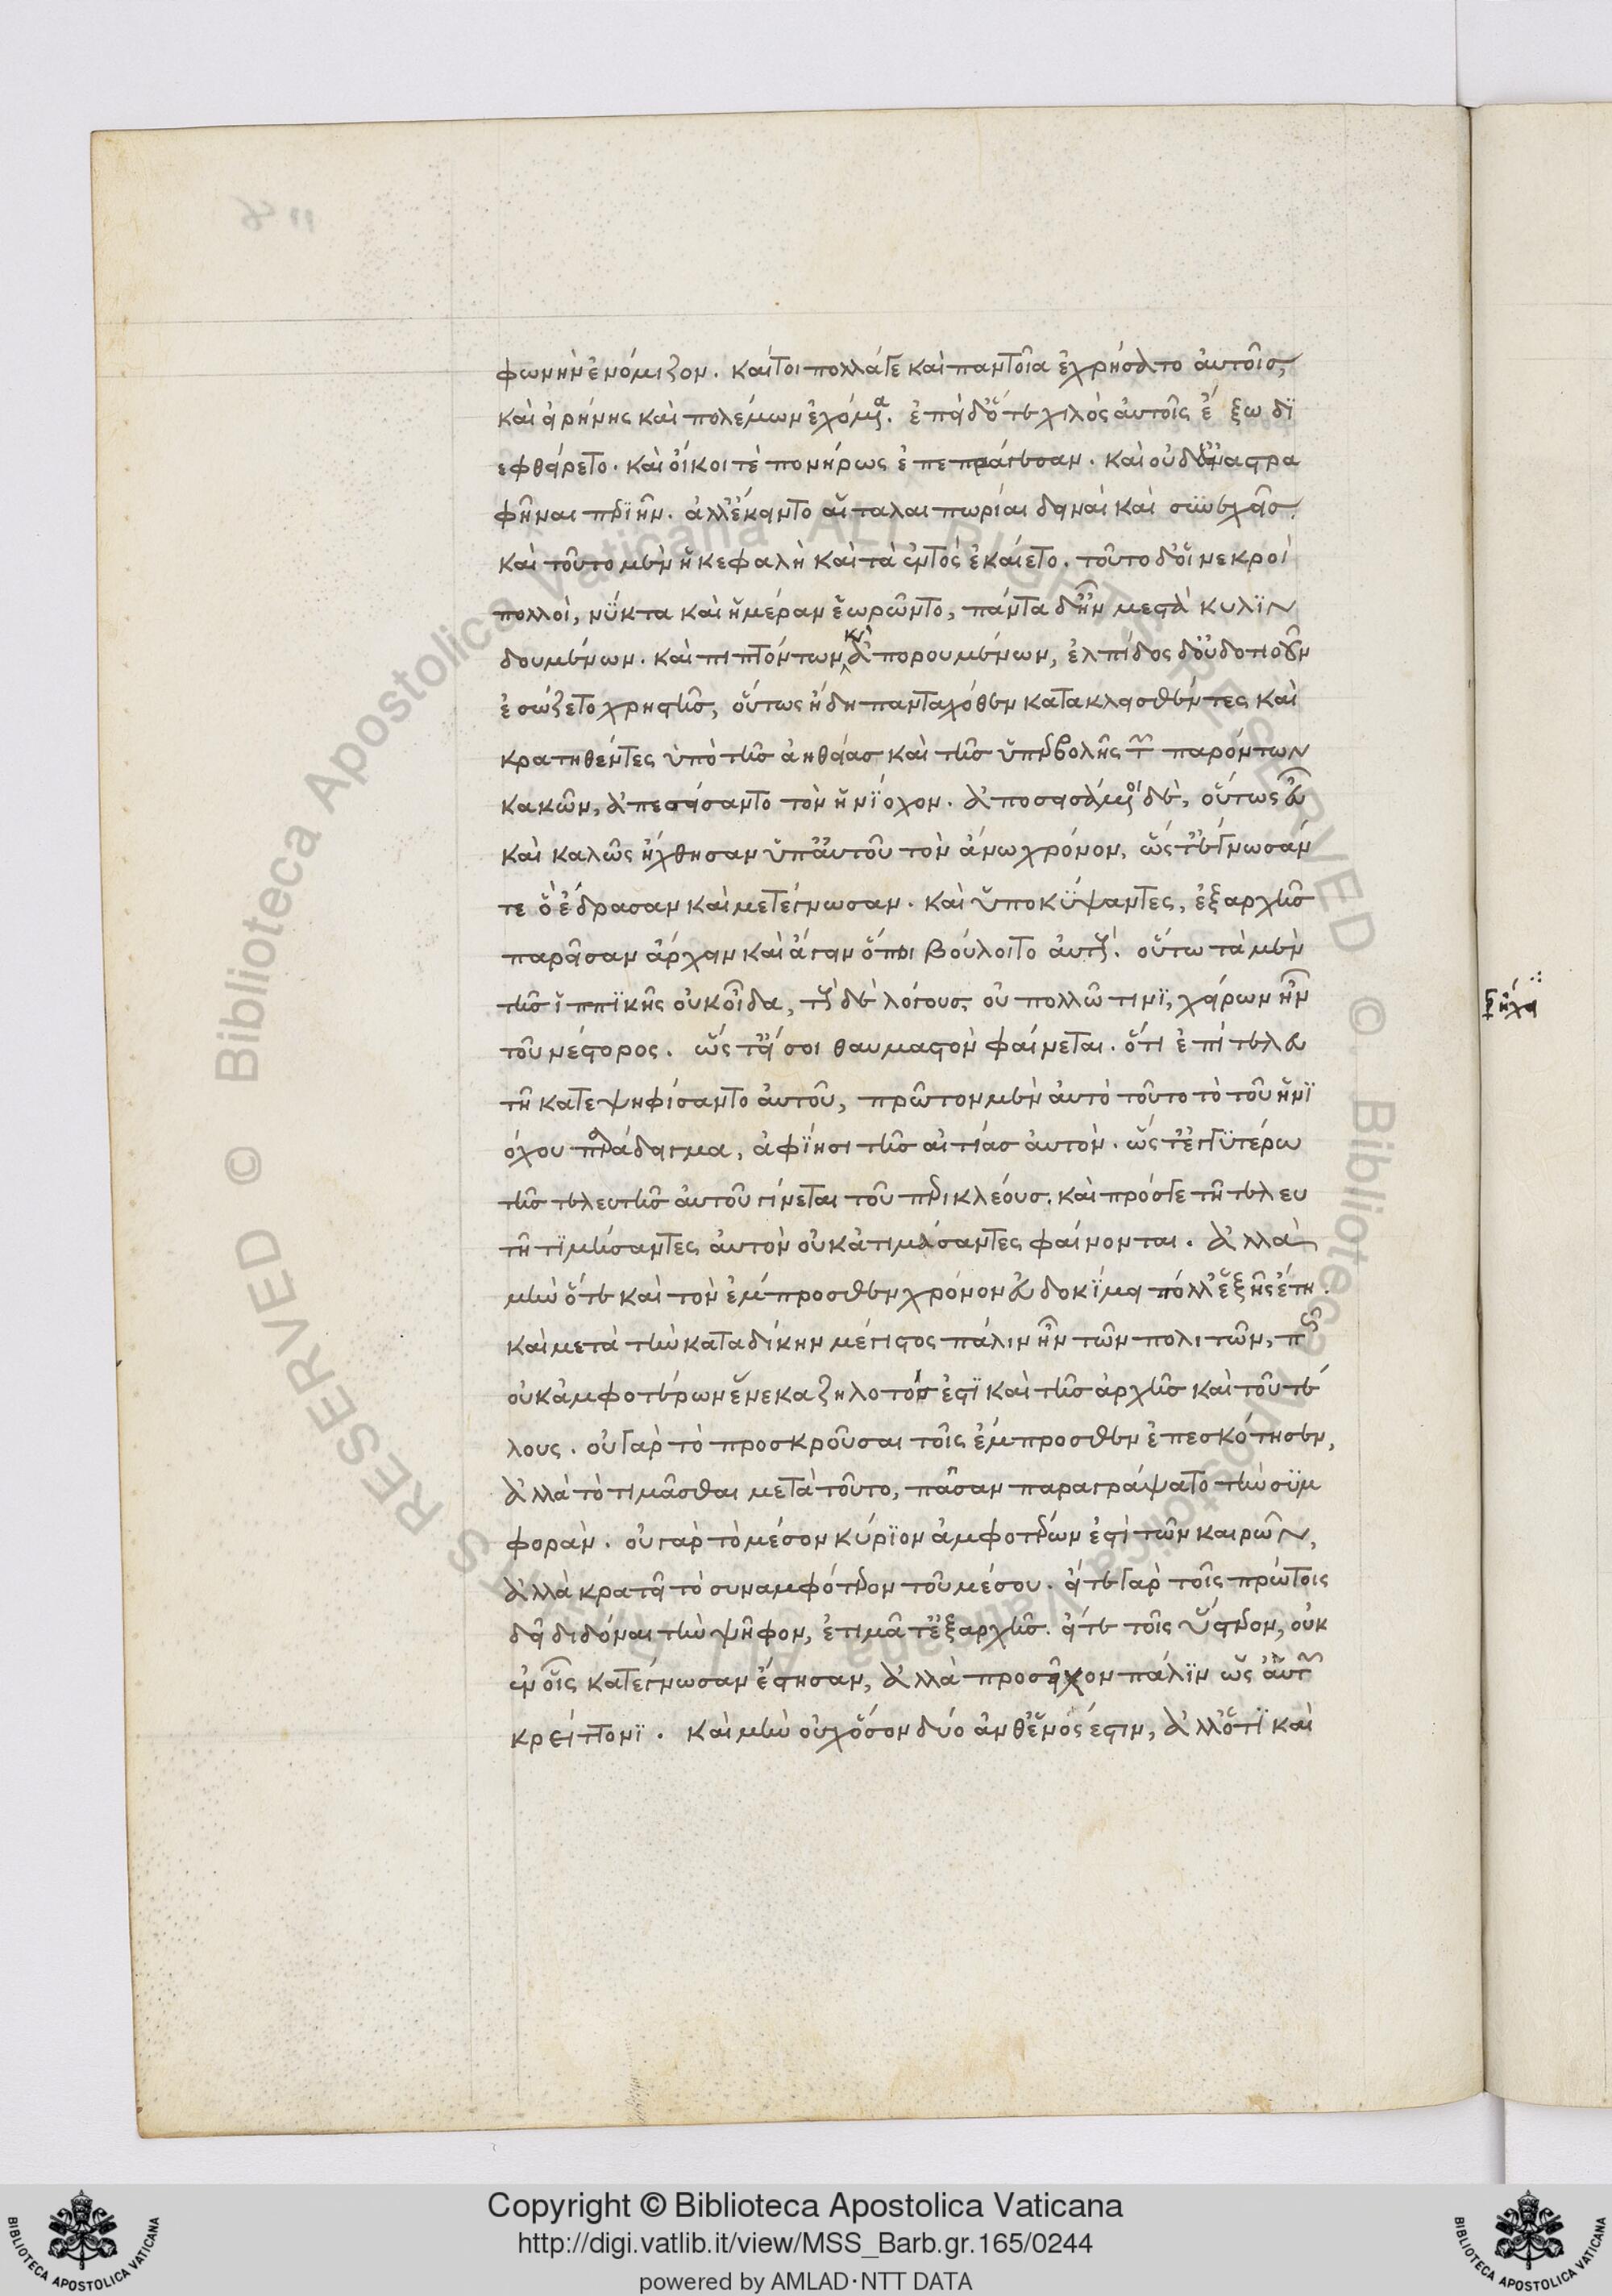 φωνὴν ἐνόμιζον. καίτοι πολλά γε καὶ παντοῖα ἐχρήσατο αὐτοῖς,
καὶ εἰρήνης καὶ πολέμων ἐχόμενα. ἐπεὶ δ' ὅ τε χιλὸς αὐτοῖς ἔξω δι
εφθείρετο. καὶ οἴκοι τε πονήρως ἐπεπράγεσαν. καὶ οὐδ' ἀναστρα
φῆναι περιῆν. ἀλλ' ἔκειντο αἱ ταλαιπωρίαι δειναὶ καὶ συνεχεῖς.
καὶ τοῦτο μὲν ἡ κεφαλὴ καὶ τὰ ἐντὸς ἐκαίετο. τοῦτο δ' οἱ νεκροὶ
πολλοὶ, νύκτα καὶ ἡμέραν ἑωρῶντο, πάντα δ' ἦν μεστὰ κυλιν
δουμένων. καὶ πιπτόντων καὶ ἀπορουμένων, ἐλπίδος δ' οὐδοτιοῦν
ἐσώζετο χρηστῆς, οὕτως ἤδη πανταχόθεν κατακλασθέντες καὶ
κρατηθέντες ὑπὸ τῆς ἀηθείας καὶ τῆς ὑπερβολῆς τῶν παρόντων
κακῶν, ἀπεσείσαντο τὸν ἡνίοχον. ἀποσεισάμενοι δὲ, οὕτως εὖ
καὶ καλῶς ἤχθησαν ὑπ' αὐτοῦ τὸν ἄνω χρόνον, ὥστ' ἔγνωσάν
τε ὃ ἔδρασαν καὶ μετέγνωσαν. καὶ ὑποκύψαντες, ἐξαρχῆς
παρεῖσαν ἄρχειν καὶ ἄγειν ὅποι βούλοιτο αὐτούς. οὕτω τὰ μὲν
τῆς ἱππικῆς οὐκ οἶδα, τοὺς δὲ λόγους οὐ πολλῶ τινι, χείρων ἦν
τοῦ νέστορος. ὥστ' εἴ σοι θαυμαστὸν φαίνεται. ὅτι ἐπὶ τελευ
τῆ κατεψηφίσαντο αὐτοῦ, πρῶτον μὲν αὐτὸ τοῦτο τὸ τοῦ ἡνι
όχου παράδειγμα, ἀφίησι τῆς αἰτίας αὐτόν. ὥστ' ἐγγυτέρω
τῆς τελευτῆς αὐτοῦ γίνεται τοῦ περικλέους. καὶ πρός γε τῆ τελευ
τῆ τιμήσαντες αὐτὸν οὐκ ἀτιμάσαντες φαίνονται. ἀλλὰ
μὴν ὅτε καὶ τὸν ἔμπροσθεν χρόνον εὐδοκίμει πόλλ' ἑξῆς ἔτη.
καὶ μετὰ τὴν καταδίκην μέγιστος πάλιν ἦν τῶν πολιτῶν, πῶς
οὐκ ἀμφοτέρων ἕνεκα ζηλοτός ἐστι καὶ τῆς ἀρχῆς καὶ τοῦ τέ
λους. οὐ γὰρ τὸ προσκροῦσαι τοῖς ἔμπροσθεν ἐπεσκότησεν,
ἀλλὰ τὸ τιμᾶσθαι μετὰ τοῦτο, πᾶσαν παραγράψατο τὴν συμ
φοράν. οὐ γὰρ τὸ μέσον κύριον ἀμφοτέρων ἐστὶ τῶν καιρῶν,
ἀλλὰ κρατεῖ τὸ συναμφότερον τοῦ μέσου. εἴτε γὰρ τοῖς πρώτοις
δεῖ διδόναι τὴν ψῆφον, ἐτιμᾶτ' ἐξαρχῆς. εἴτε τοῖς ὕστερον, οὐκ
ἐν οἷς κατέγνωσαν ἔστησαν, ἀλλὰ προσεῖχον πάλιν ὡς αὑτῶν
κρείττονι. καὶ μὴν οὐχ ὅσον δύο ἀνθ' ἑνός ἐστιν, ἀλλ' ὅτι καὶ